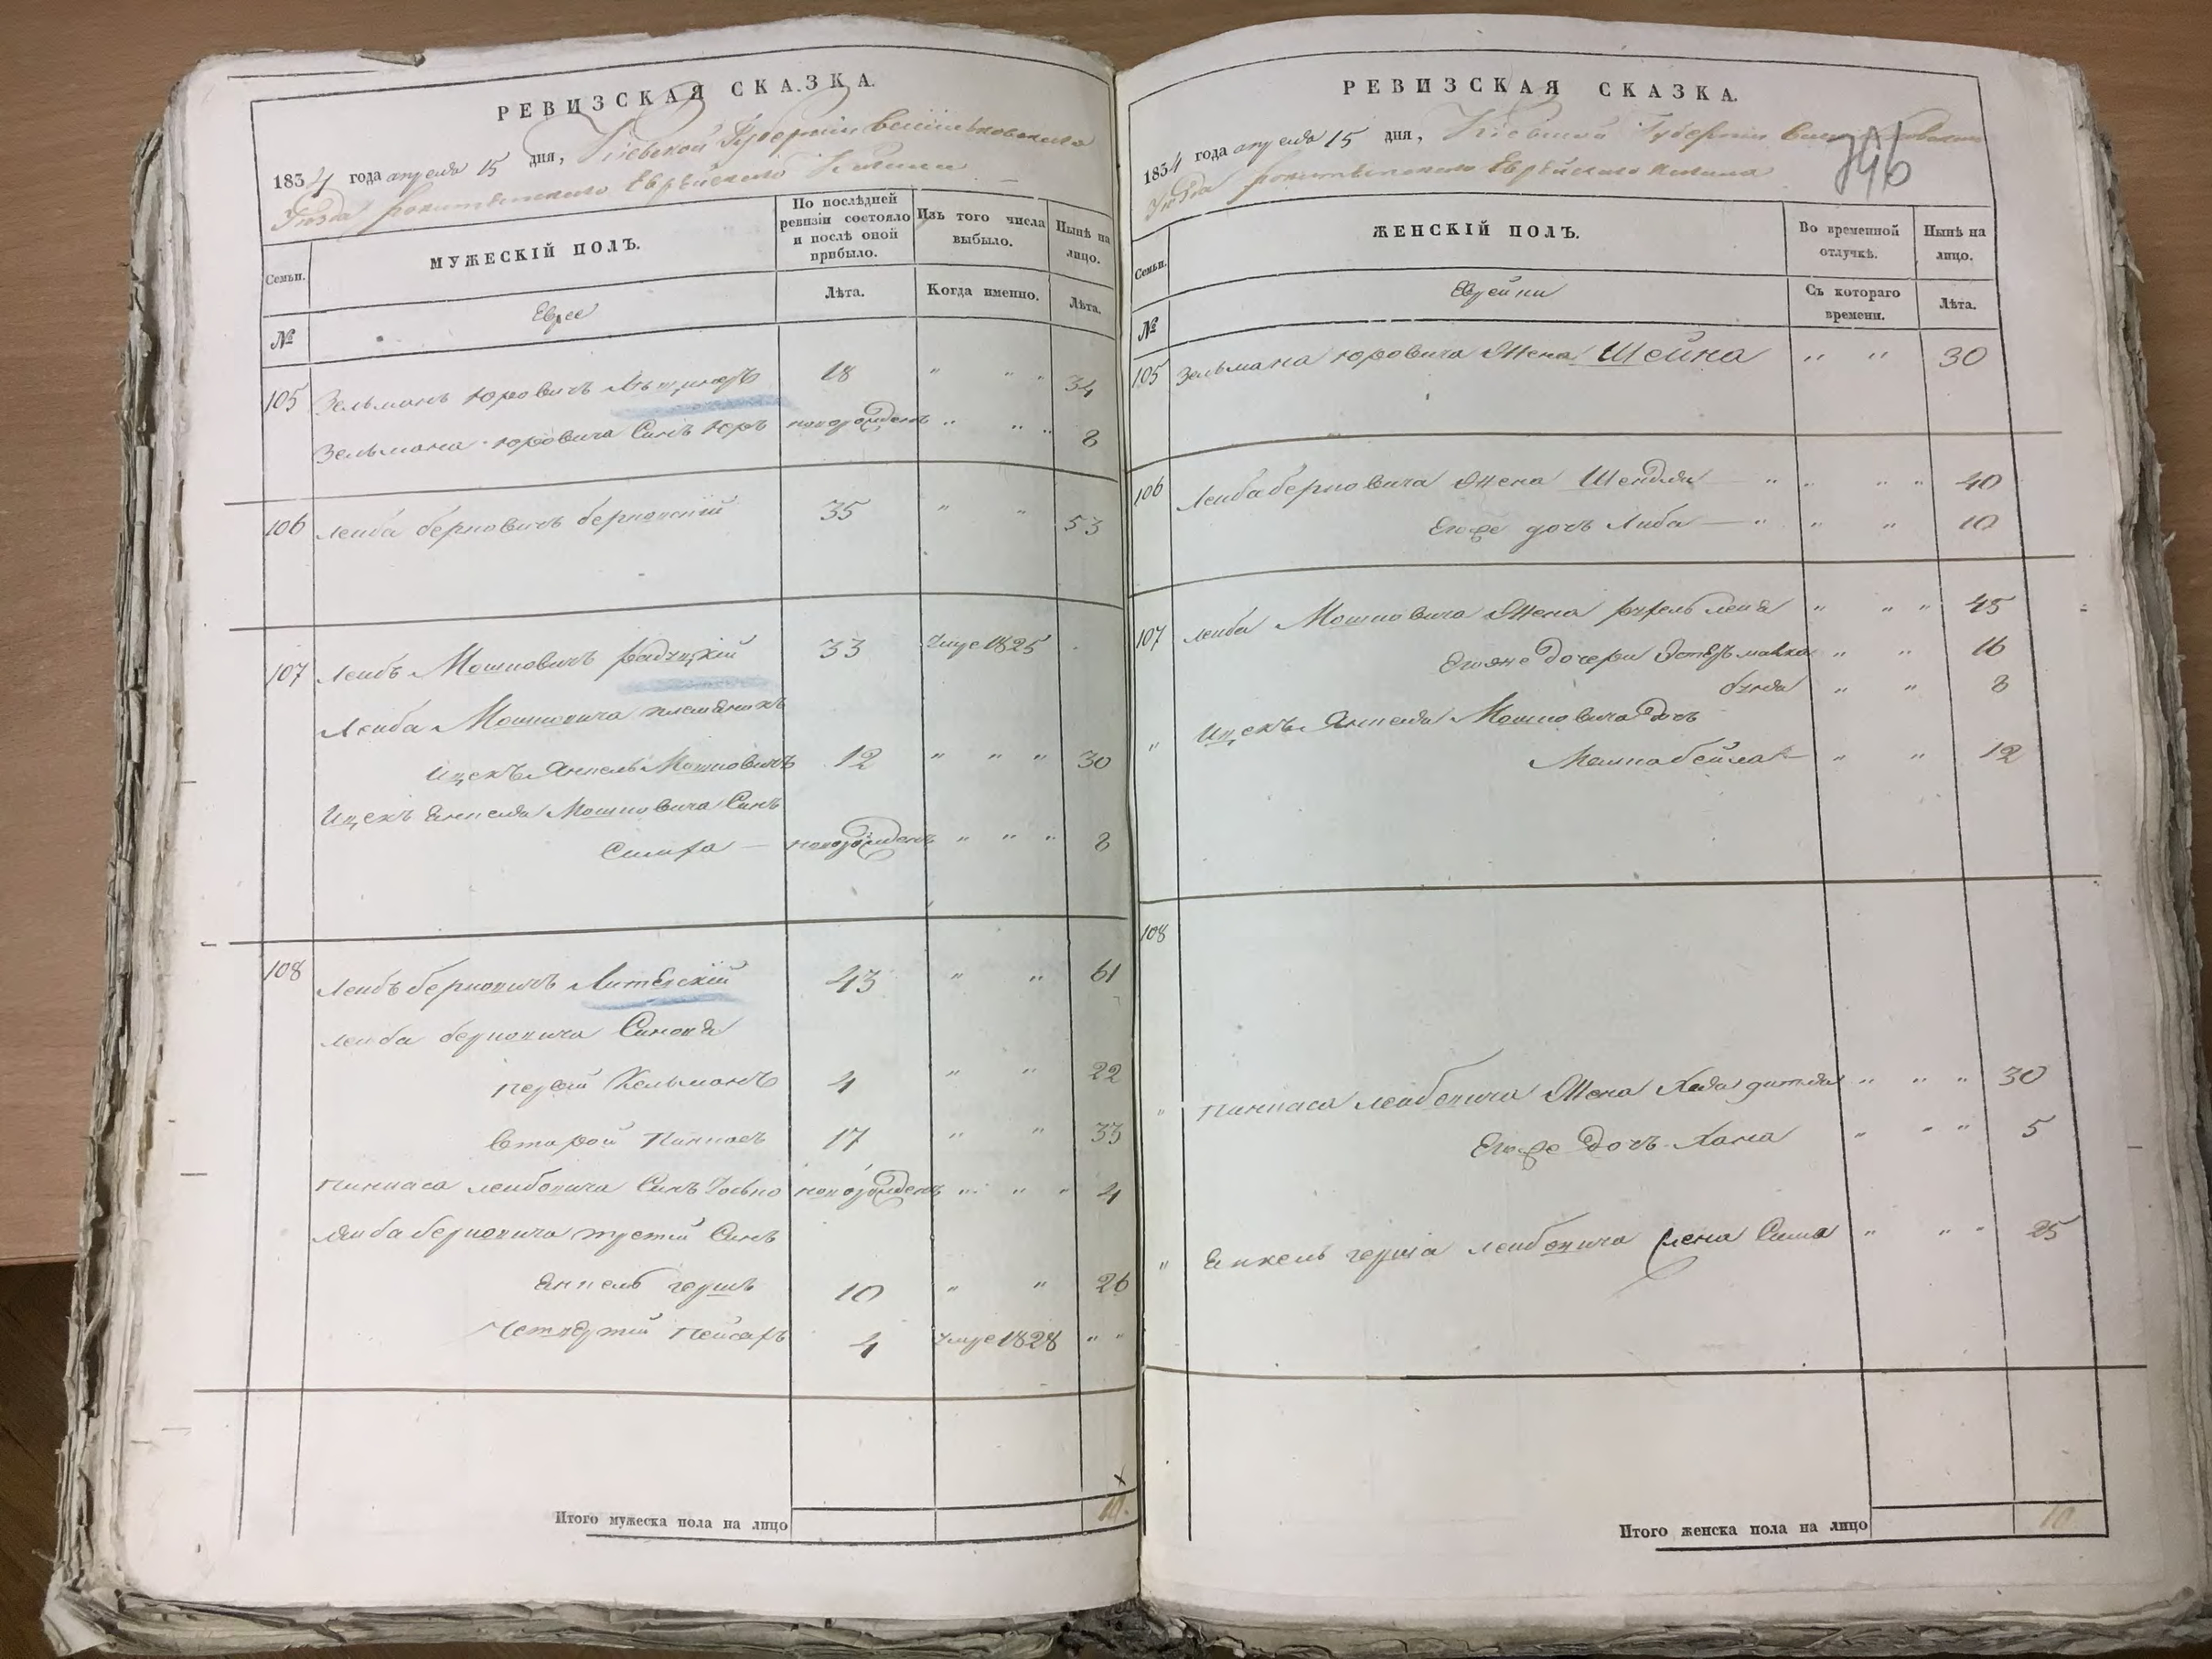 РЕВИЗСКАЯ СКАЗКА.
1834 года апреля 15 дня, Кіевской Губерніи Васильковского
Уезда рокитянского Еврейского Кагала
Семьи.
МУЖЕСКІЙ ПОЛЪ.
По послѣдней ревизіи состояло и послѣ оной прибыло.
Изъ того числа выбыло.
Нынѣ на лицо.
№
Еврее
Лѣта.
Когда именно.
Лѣта.
105 Зельманъ Юровичъ 18 " " " 34
Зельмана Юровича Синъ Юръ новорожденъ " " " 8
106 Лейба берковичъ берковскій 35 " " 53
107 Лейбъ Мошковичъ 33 умре 1825
Лейба Мошковича племянникъ
Ицекъ Янкель Мошковичъ 12 " " " 30
Ицекъ Янкеля Мошковича Синъ
новорожденъ " " " 8
108 Лейбъ берковичъ Литенскій 43 " " 61
Лейба берковича Синовя
первій Кельманъ 4 " " 22
Второй Пинкасъ 17 " " 33
Пинкаса лейбовича Синъ новорожденъ " " " 4
Лейба берковича третій Синъ
Янкель гершъ 10 " " 26
Четвертій Пейсахъ 4 умре 1828 " "
Итого мужеска пола на лицо 10.
РЕВИЗСКАЯ СКАЗКА.
1834 года апреля 15 дня, Кіевской Губерніи Васильковского
Уезда рокитянского Еврейского Кагала
746
Семьи.
ЖЕНСКІЙ ПОЛЪ.
Во временной отлучкѣ.
Нынѣ на лицо.
№
Еврейки
Съ котораго времени.
Лѣта.
105 Зельмана Юровича Жена Шейна " " 30
106 Лейба берковича Жена Шендля " " " " 40
Егоже дочь Либа — " " " 10
107 Лейба Мошковича Жена рухель леа " " " 45
Егоже дочери Эстеръ малка " " 16
" " 8
" Ицекъ Янкеля Мошковича Дочь
бейла — " " 12
108
" Пинкаса лейбовича Жена Хая " " " 30
Егоже Дочь Хана " " " 5
" Янкель герша лейбовича Жена Сима " " " 25
Итого женска пола на лицо 10